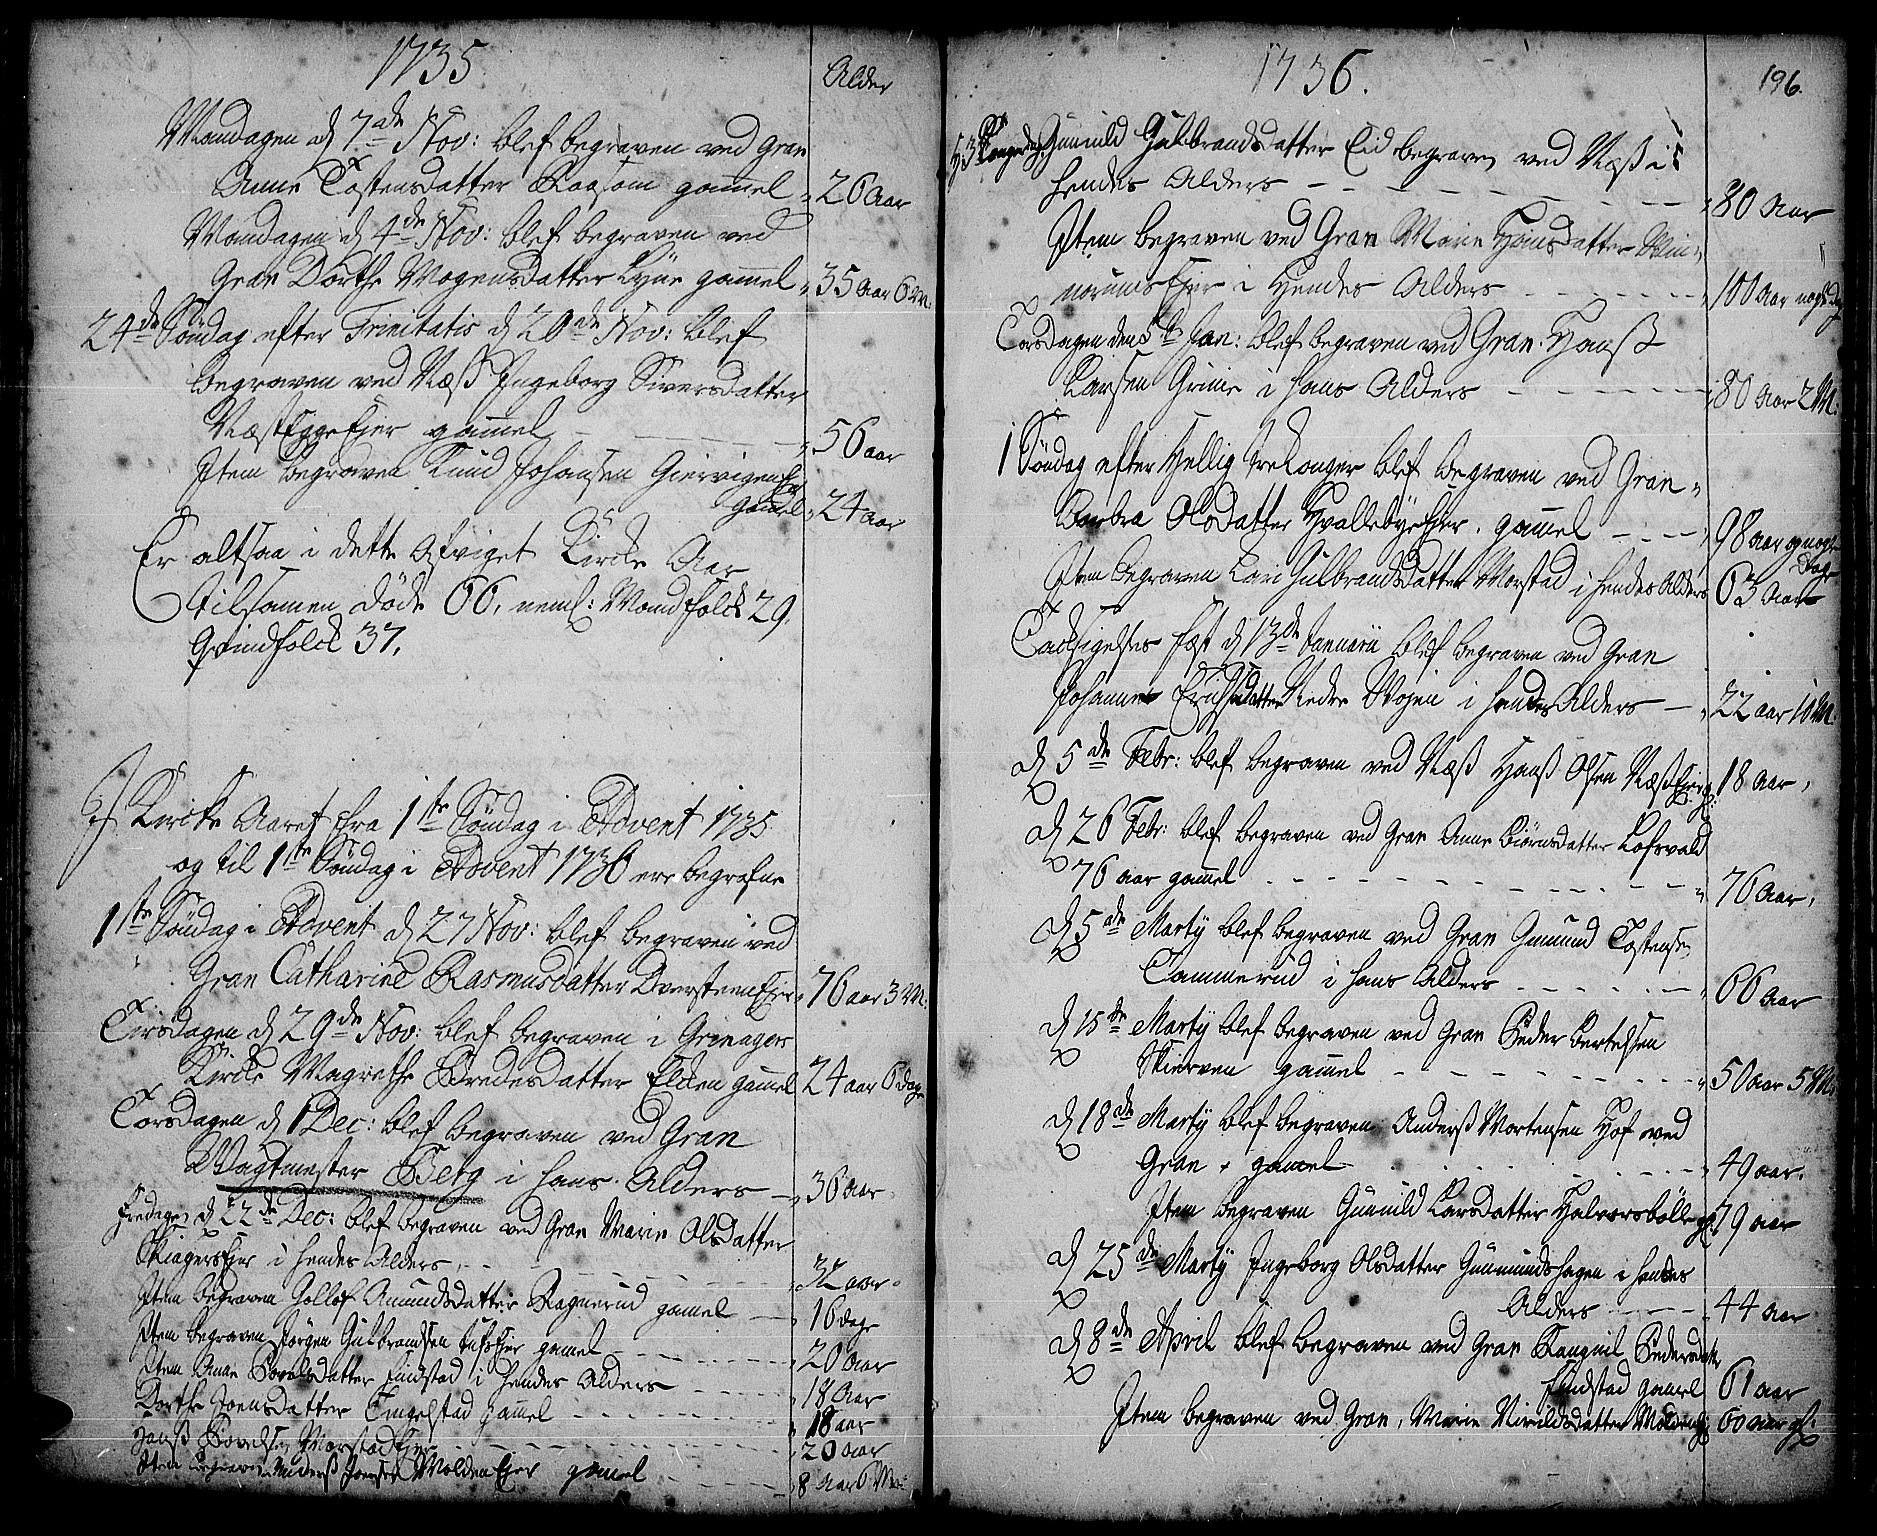 1735
Alder
Mandagen d 7de Nov: blef begraven ved Gran
Anne Tostensdatter Raasom gammel 26 Aar
Mandagen d 4de Nov: blef begraven ved
Gran Dorthe Mogensdatter Lyne gammel 35 Aar 6 M.
24de Søndag efter Trinitatis d 20de Nov: blef
begraven ved Næss Ingeborg Siversdatter
NæstEggeEjer gammel 56 aar
Item begraven Knud Johansen Giervigen Ejer
gammel 24 aar
Er altsaa i dette afviget Kirke Aar
tilsamen døde 66, neml: Mandfolck 29,
Qvindfolck 37.
I Kircke Aaret fra 1te Søndag i Advent 1735
og til 1te Søndag i Advent 1736 ere begrafne
1te Søndag i Advent d 27 Nov: blef begraven ved
Gran Catharine Rasmusdatter DversteenEjer 76 aar 3 M.
Tirsdagen d 29de Nov: blef begraven i Grinagers
Kircke Magrethe Bredesdatter Elken gammel 24 aar 6 dage
Torsdagen d 1 Dec: blef begraven ved Gran
Wagtmester Berg i hans Alders 36 aar
Fredagen d 22de Dec: blef begraven ved Gran Marie Olsdatter
SkiagersEjer i hendes Alders 32 aar
Item begraven Gollof Amundsdatter Ragnerud gamel 16 dage
Item begraven Jørgen Gulbrandsen gamel 20 aar
Item Anne Povelsdatter Findstad i hendes Alders 18 Aar
Dorthe Joensdatter Tingelstad gammel 18 aar
Hanss Povelsen MorstadEjer 20 aar
Item begraven Anderss Joensen MoldenEjer gamel 8 Aar 6 M
1736.
196.
Gunnild Gulbrandsdatter Eid begraven ved Næss i
hendes Alders 80 Aar
Item begraven ved Gran Marie Hansdatter
i hendes Alders 100 Aar nogle dg
Torsdagen den 5te Jan: blef begraven ved Gran Hanss
Larsen Grinie i hans Alders 80 Aar 2 M:
1 Søndag efter Hellig treKonger blef begraven ved Gran
Barbra Olsdatter HvallebyeEjer gammel 98 aar og nogle
Dage
Item begraven Kari Gulbrandsdatter Morstad i hendes Alders 63 Aar
Tacksigelses fest d 13de Januarii blef begraven ved Gran
Johanne Erichsdatter Nedre Wojen i hendes Alders 22 aar 10 M.
d 5de Febr: blef begraven ved Næss Hanss Olsen NæssEjer 18 aar,
d 26 Febr: blef begraven ved Gran Anne Biørnsdatter Lofsvald
76 aar gamel 76 Aar,
d 5de Martij blef begraven ved Gran Gunnund Tostensen
Tammerud i hans Alders 66 Aar
d 15de Martij blef begraven ved Gran Peder Bertelsen
Skierven gammel 50 Aar 5 M.
d 18de Martij blef begraven Anderss Mortensen Hof ved
Gran gamel 49 aar.
Item begraven Gunnild Larsdatter Halvorsbølle 79 aar
d 25de Martij Ingeborg Olsdatter Gunmundshagen i hendes
Alders 44 aar
d 8de April blef begraven ved Gran Rangnil Pedersdatter
Findstad gamel 61 aar
Item begraven ved Gran, Marie 60 aar